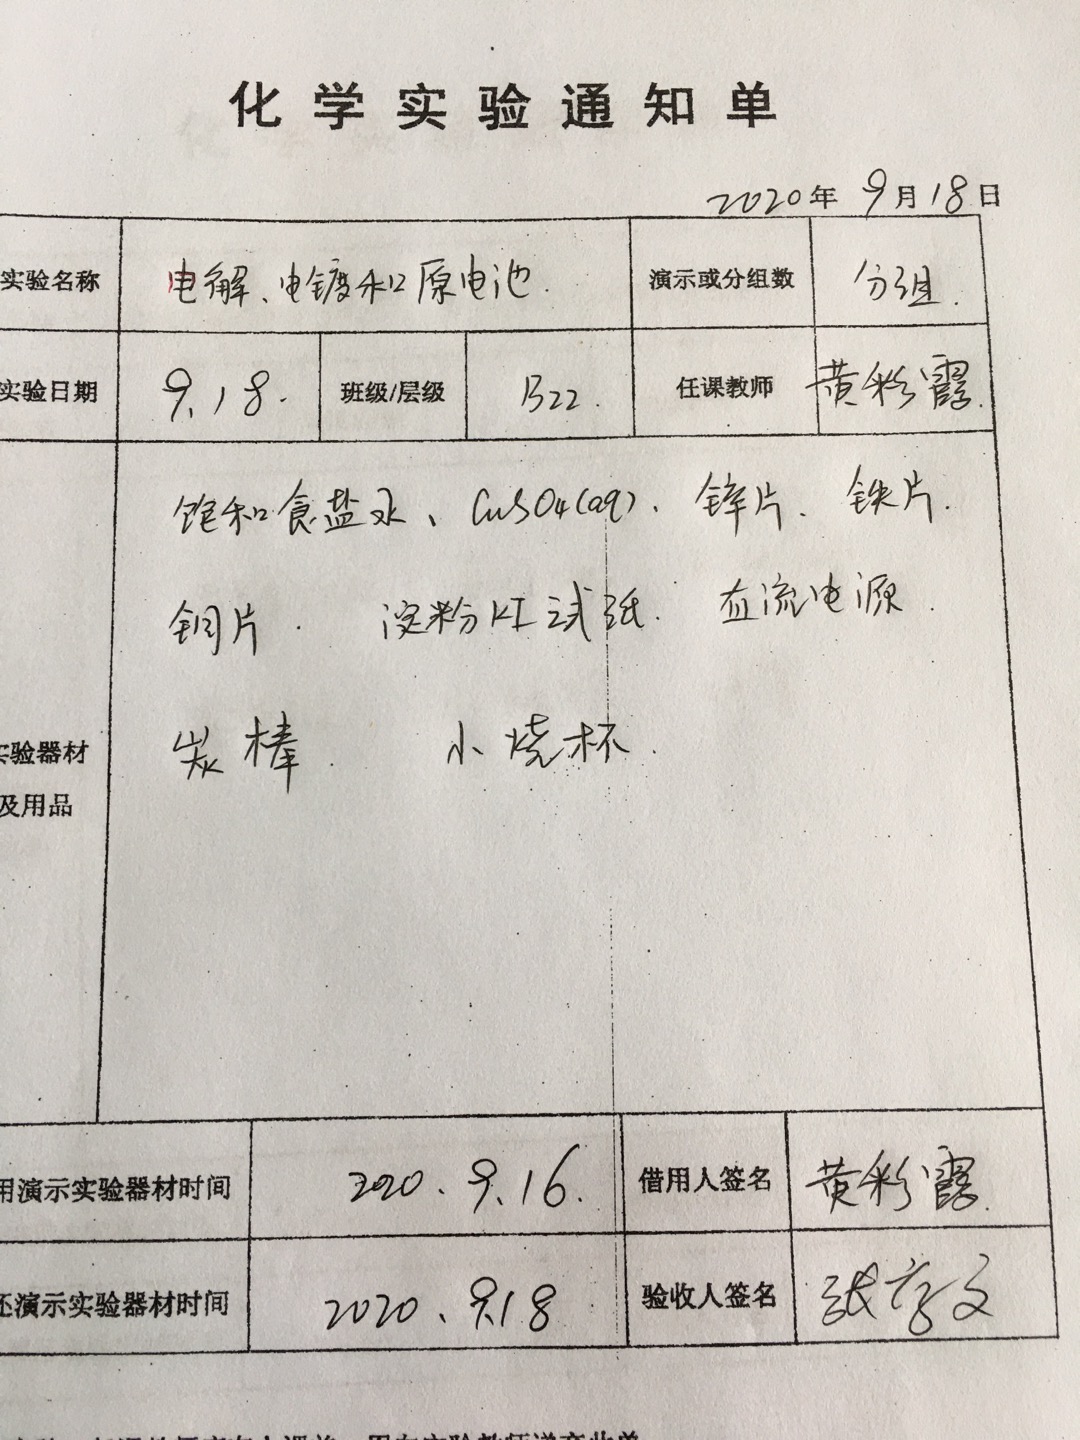 化学实验通知单
2020年 9月18日
实验名称 电解、电镀和原电池. 演示或分组数 分组.
实验日期 9.18. 班级/层级 B22. 任课教师 黄彩霞.
饱和食盐水、CuSO4(aq)、锌片、铁片.
铜片. 淀粉KI试纸. 直流电源.
炭棒. 小烧杯.
实验器材
及用品
用演示实验器材时间 2020.9.16. 借用人签名 黄彩霞.
还演示实验器材时间 2020.9.18 验收人签名 张彦文